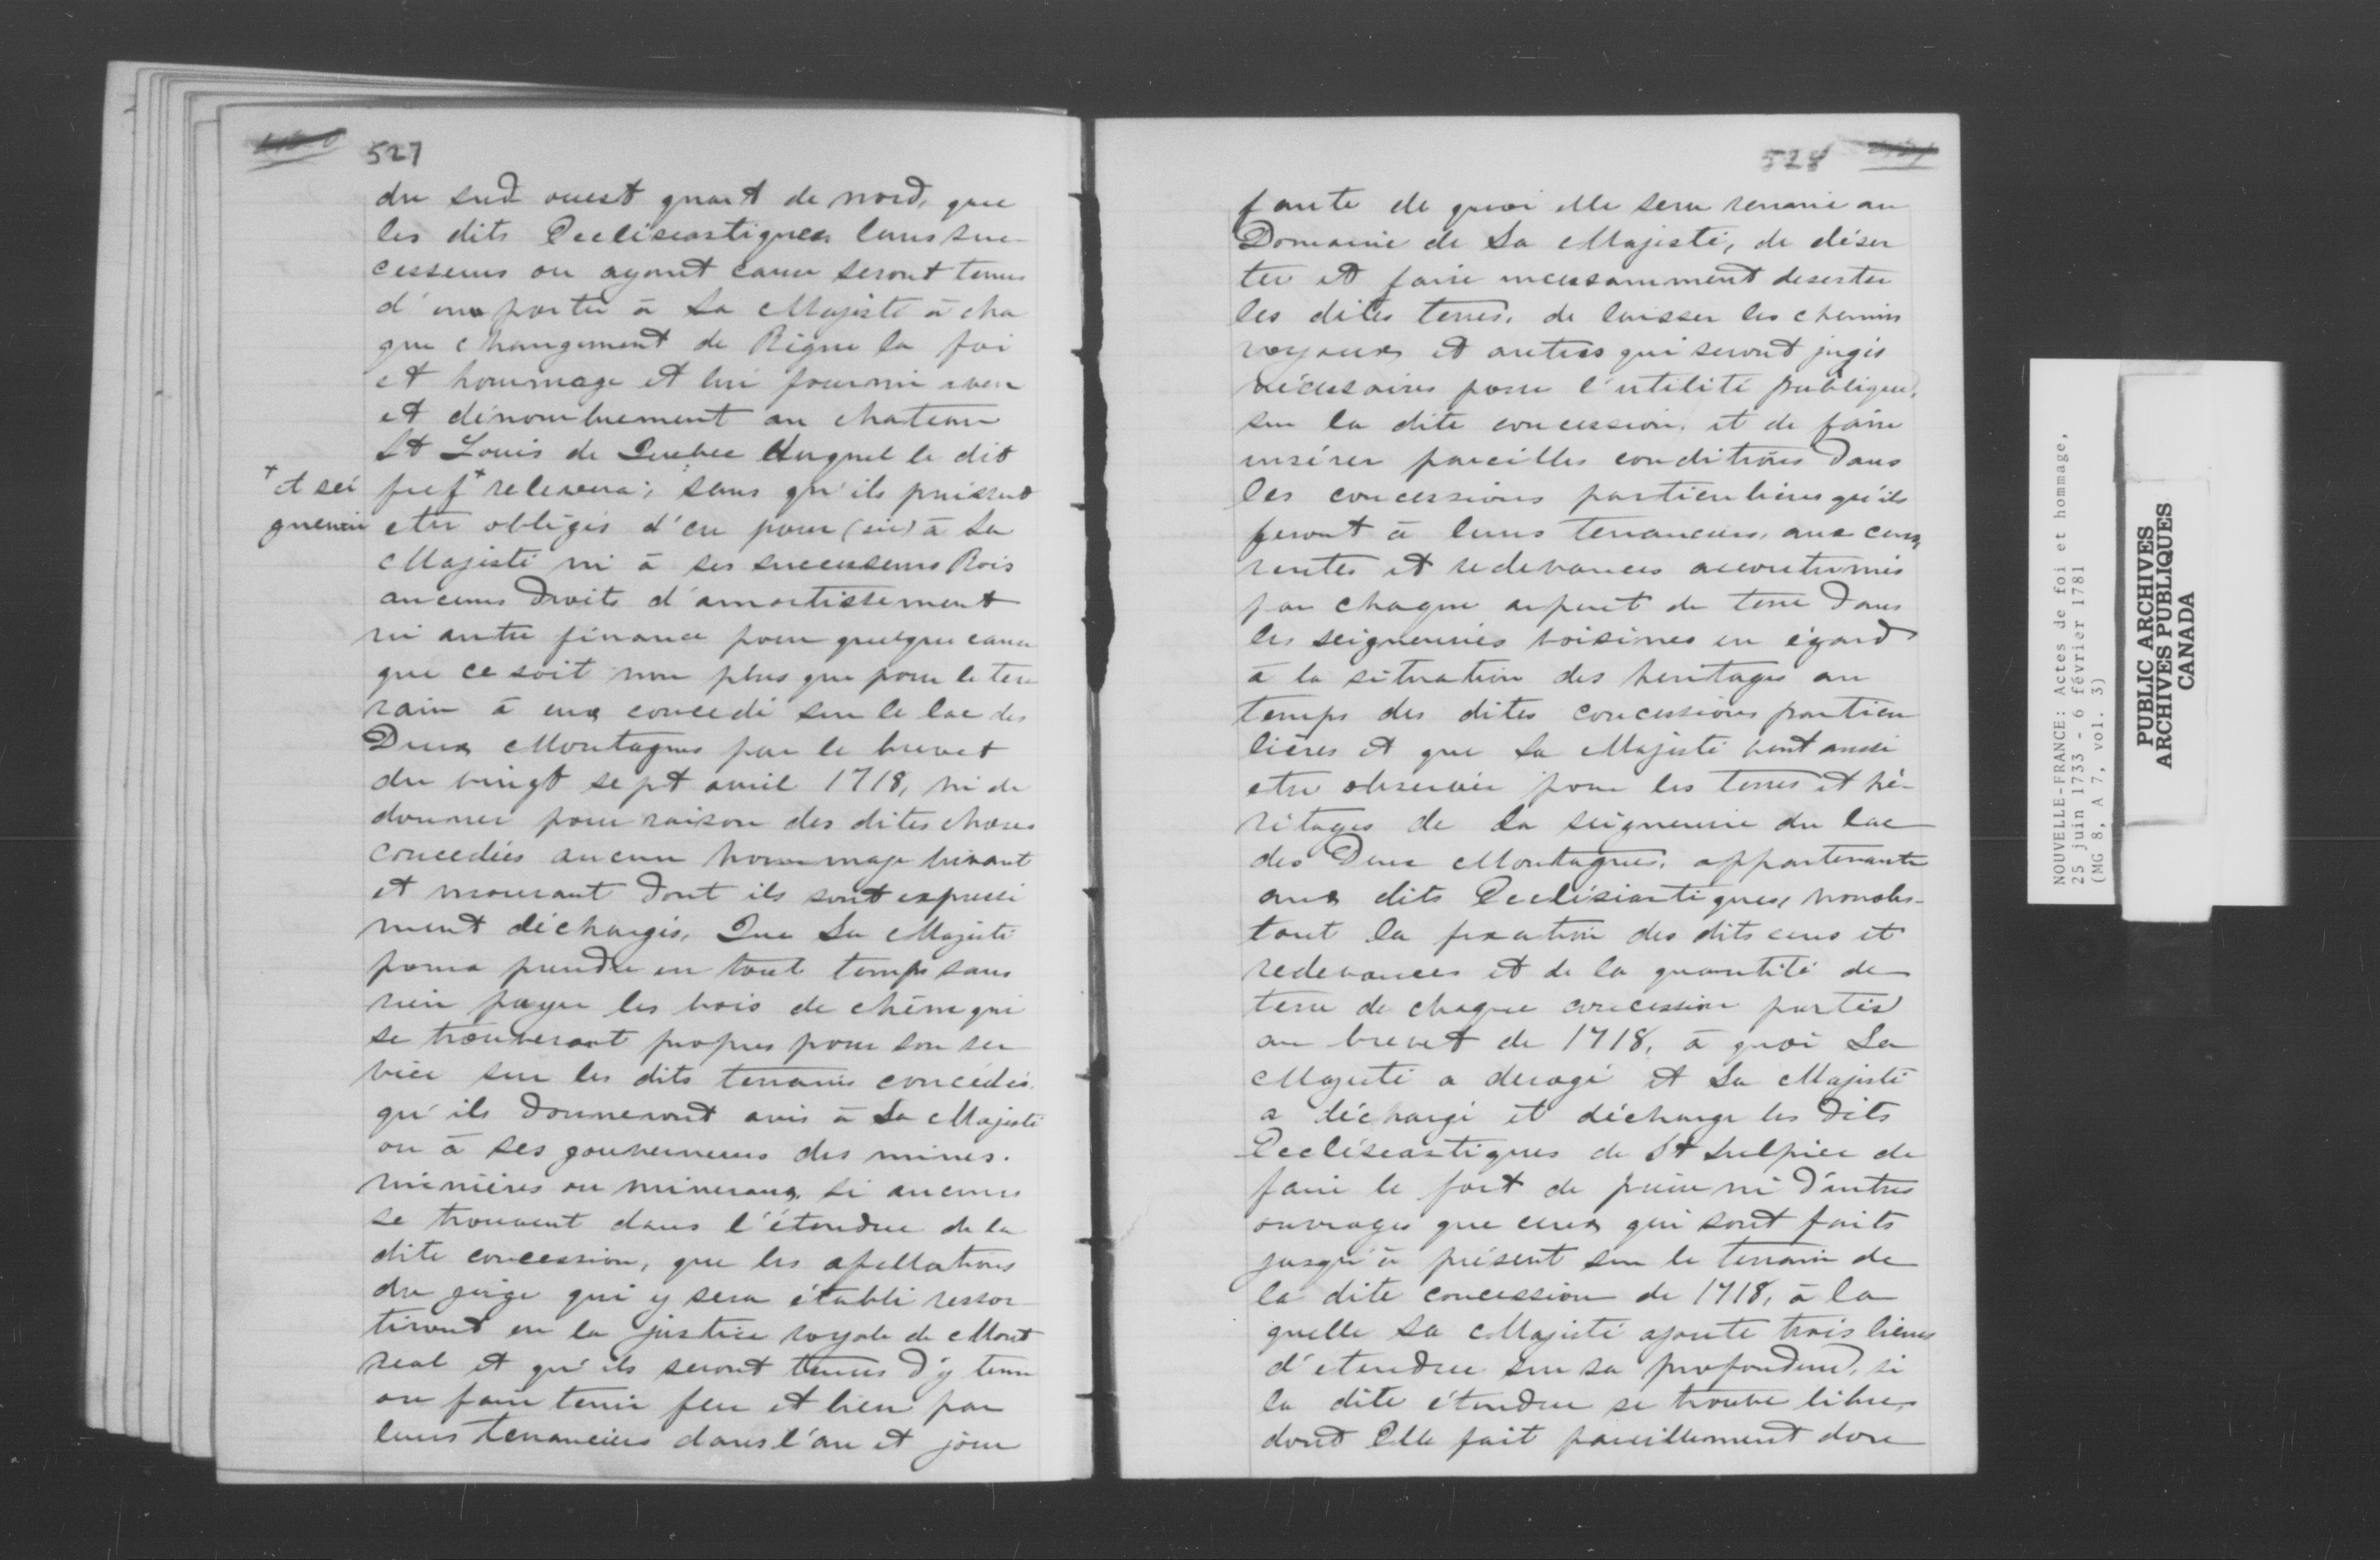 527
du sud ouest quart de nord, que
les dits Ecclésiastiques leurs suc-
cesseurs ou ayant cause seront tenus
d'en porter à Sa Majesté à cha
que changement de Règne la foi
et hommage et lui fournir aveu
et dénombrement au chateau
St Louis de Quebec duquel le dit
+ et sei
gneurie
fief + relevera; sans qu'ils puissent
etre obligés d'en pour (sic) à Sa
Majesté ni à ses successeurs Rois
aucuns droits d'amortissement
ni autre finance pour quelque cause
que ce soit non plus que pour le ter
rain à eux concédé sur le lac des
Deux Montagnes par le brevet
du vingt sept avril 1718, ni de
donner pour raison des dites choses
concedées aucun hommage vivant
et mourant dont ils sont expressé
ment déchargés, Que Sa Majesté
poura prendre en tout temps sans
rien payer les bois de chêne qui
se trouveront propres pour son ser
vice sur les dits terrains concédés.
qu'ils donneront avis à Sa Majesté
ou à ses gouverneurs des mines.
minières ou mineraux, si aucuns
se trouvent dans l'étendue de la
dite concession, que les apellations
du juge qui y sera établi ressor-
tiront en la justice royale de Mont
real et qu'ils seront tenus d'y tenir
ou faire tenir feu et lieu par
leurs tenanciers dans l'an et jour
528
faute de quoi elle sera reunie au
Domaine de Sa Majesté, de déser
ter et faire incessamment deserter
les dites terres, de laisser les chemins
royaux et autres qui seront jugés
nécessaires pour l'utilité publique,
sur la dite concession, et de faire
insérer pareilles conditions dans
les concessions particulières qu'ils
feront à leurs tenanciers, aux cens,
rentes et redevances accoutumés
par chaque arpent de terre dans
les seigneuries voisines eu égard
à la situation des heritages au
temps des dites concessions particu
lières et que Sa Majesté veut aussi
etre observée pour les terres et hé-
ritages de la seigneurie du lac
des Deux Montagnes, appartenante
aux dits Ecclésiastiques, nonobs-
tant la fixation des dits cens et
redevances et de la quantité de
terre de chaque concession portés
au brevet de 1718, à quoi Sa
Majesté a derogé et Sa Majesté
a déchargé et décharge les dits
Ecclésiastiques de St Sulpice de
faire le fort de pierre ni d'autres
ouvrages que ceux qui sont faits
jusqu'à présent sur le terrain de
la dite concession de 1718, à la
quelle Sa Majesté ajoute trois lieues
d'etendue sur sa profondeur, si
la dite étendue se trouve libre,
dont Elle fait pareillement don
NOUVELLE-FRANCE: Actes de foi et hommage,
25 juin 1733 - 6 février 1781
(MG 8, A 7, vol. 3)
PUBLIC ARCHIVES
ARCHIVES PUBLIQUES
CANADA